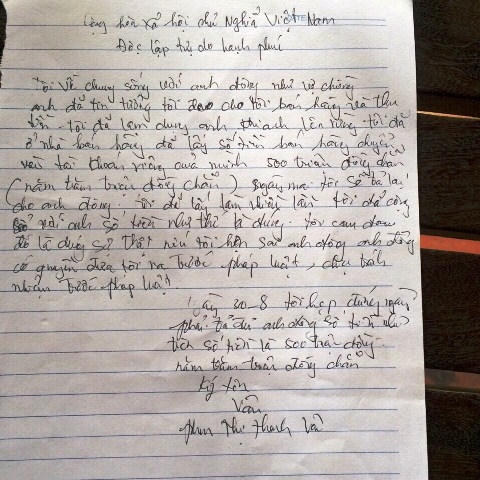 Cộng hòa xã hội chủ Nghĩa Việt Nam
Độc lập tự do hạnh phúc
Tôi về chung sống với anh đông như vợ chồng
anh đã tin tưởng tôi giao cho tôi bán hàng và thu
tiền tôi đã lạm dụng anh khi anh lên rừng tôi đã
ở nhà bán hàng đã lấy số tiền bán hàng chuyển
vào tài khoản riêng của mình 500 triệu đồng chẵn
(năm trăm triệu đồng chẵn) ngày mai tôi sẽ trả lại
cho anh đông tôi đã lấy làm nhiều lần tôi đã cộng
với anh số tiền như thế là đúng tôi cam đoan
đó là đúng sự thật nếu tôi hôn sai anh đông anh đông
có quyền đưa tôi ra trước pháp luật, chịu trách
nhiệm trước pháp luật
ngày 30-8 tôi hẹp đúng ngày
phải trả cho anh đông số tiền như
trên số tiền là 500 triệu đồng
năm trăm triệu đồng chẵn
ký tên
Vân
phan Thị thanh Vân